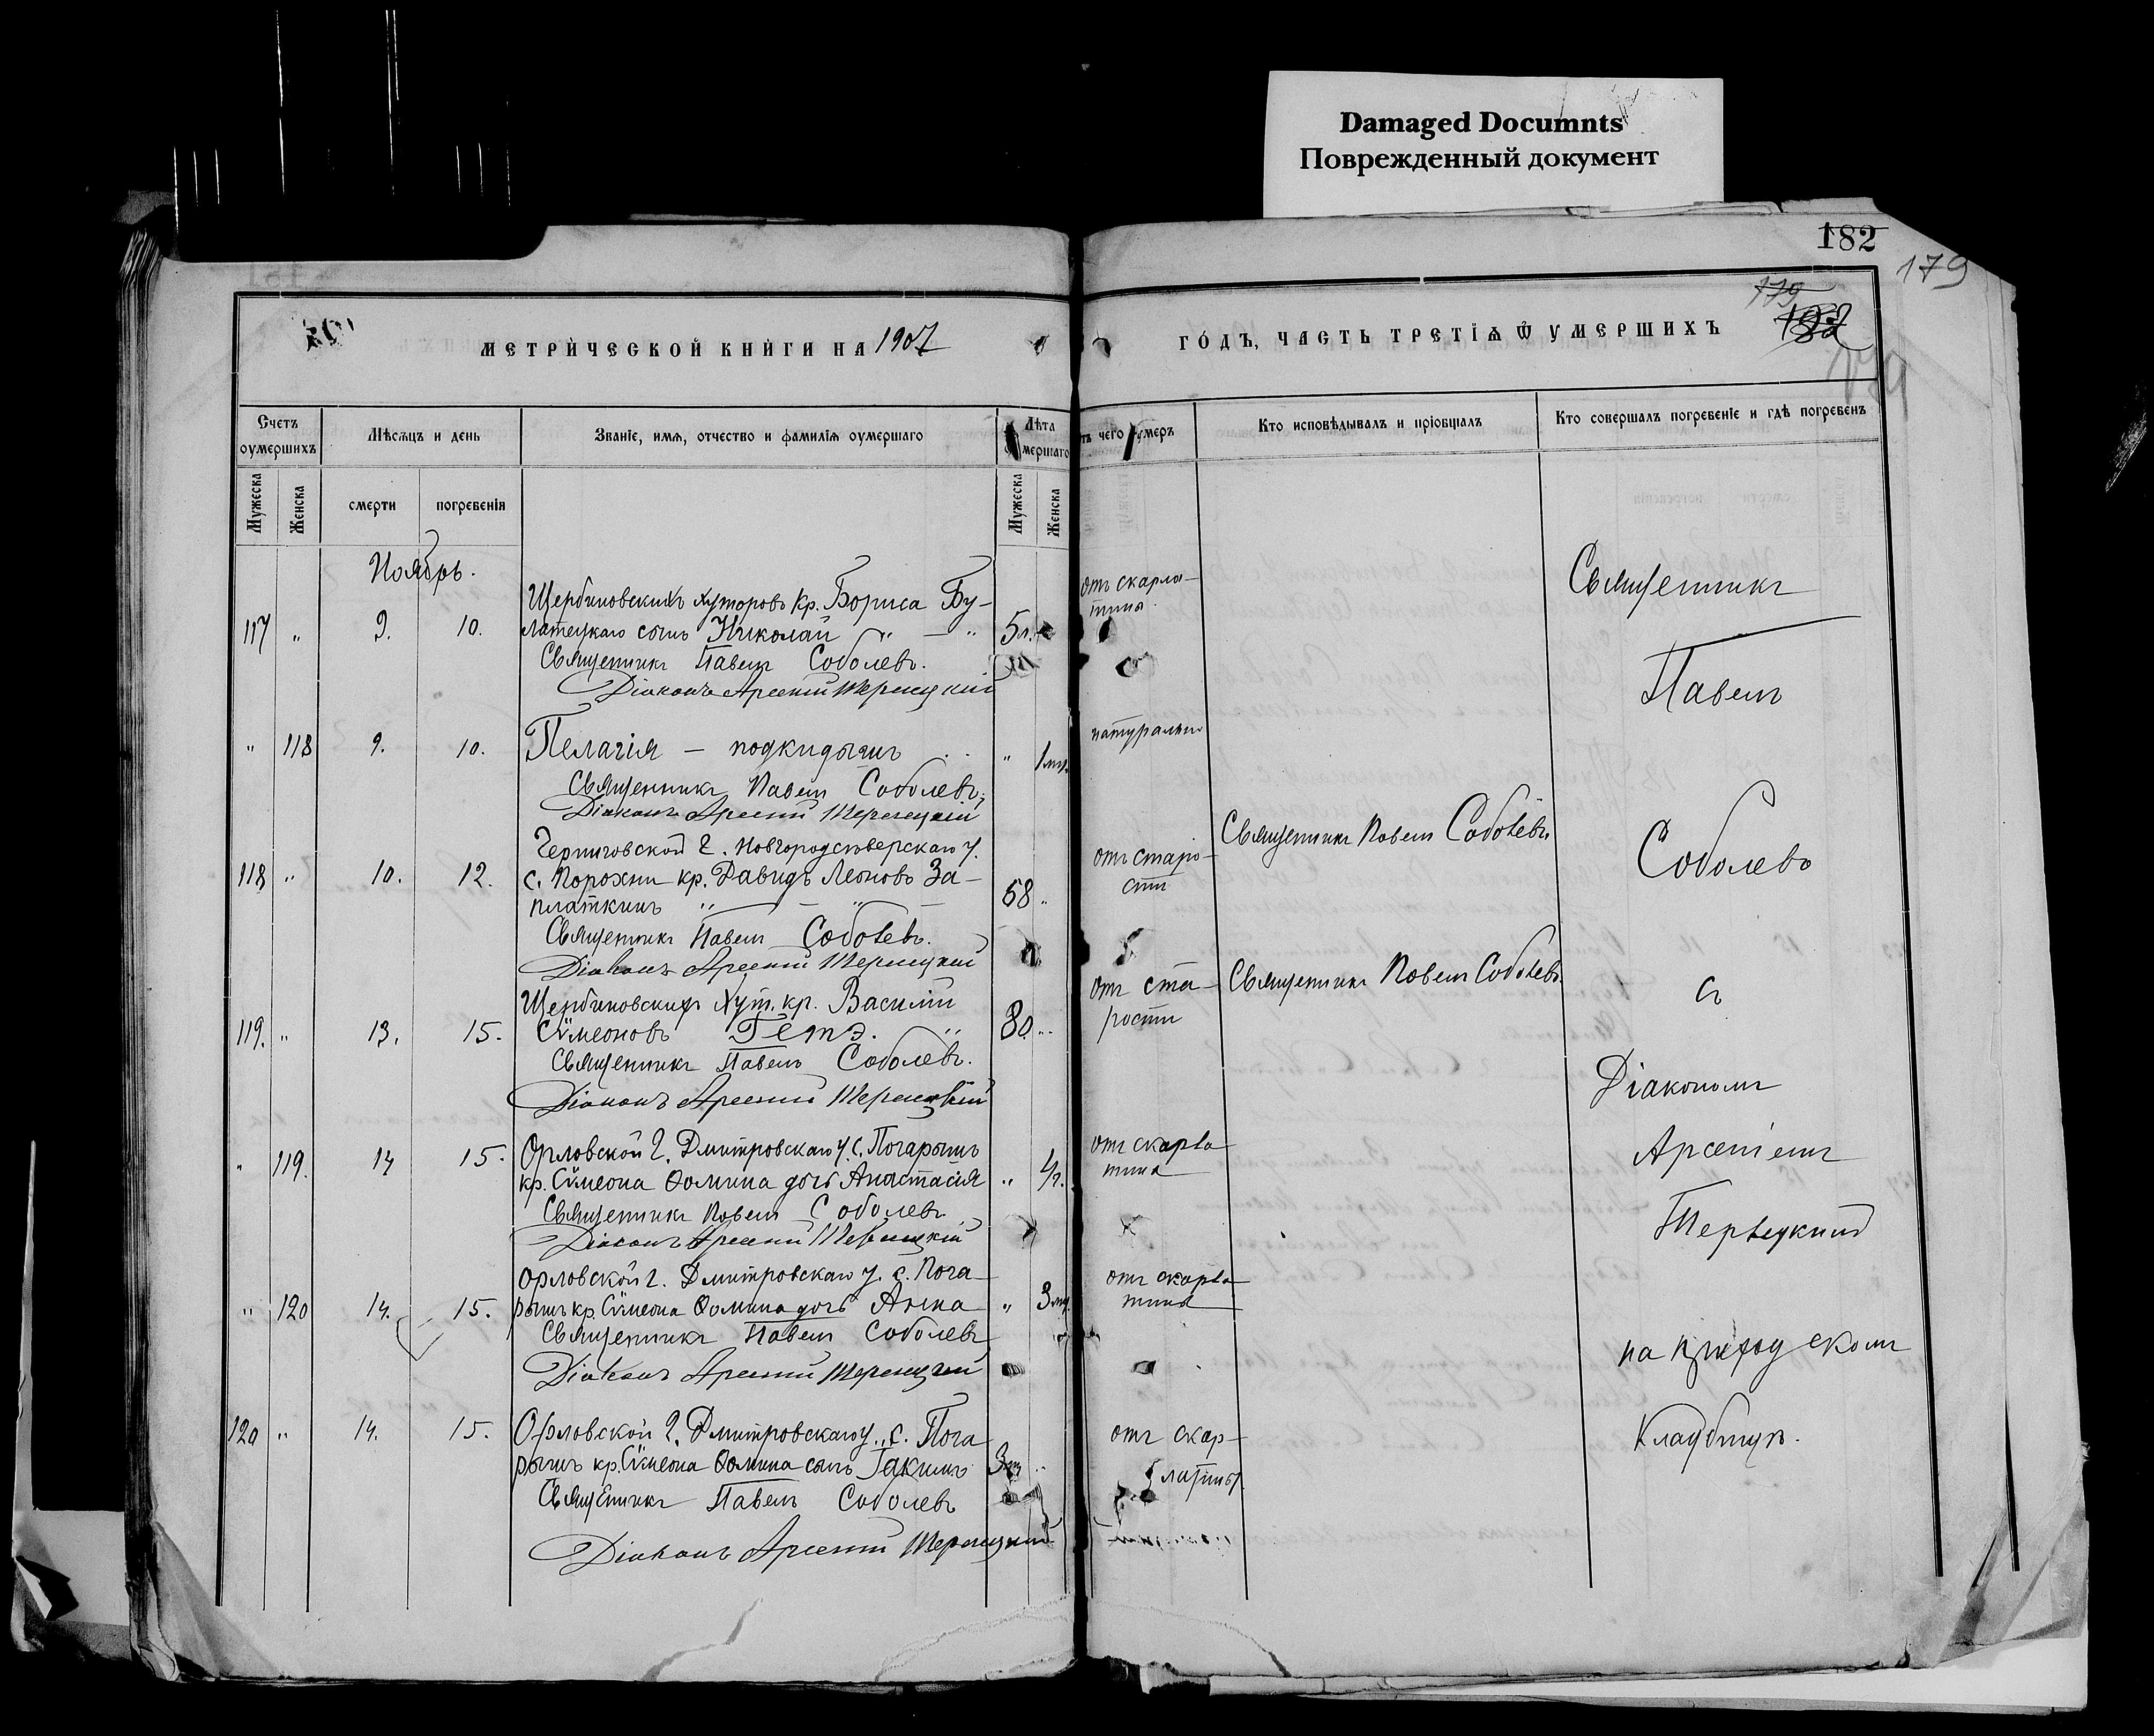 Damaged Documnts
Поврежденный документ
182
179
179
182
МЕТРИЧЕСКОЙ КНИГИ НА 1907
ГОДЪ, ЧАСТЬ ТРЕТІѦ Ѿ УМЕРШИХЪ
Счетъ оумершихъ
Мѣсѧцъ и день
Званіе, имѧ, отчество и фамиліѧ оумершаго
Лѣта оумершаго
тъ чего умеръ
Кто исповѣдывалъ и пріобщалъ
Кто совершалъ погребеніе и гдѣ погребенъ
Мужеска
Женска
смерти
погребенія
Мужеска
Женска
Ноябрь.
Щербиновскихъ хуторовъ кр. Бориса Бу-
117 " 9. 10. латецкаго сынъ Николай " — " 5 л.
отъ скарла-
тина
Священникъ Павелъ Соболевъ.
Діаконъ Арсеній Терлецкій
" 118 9. 10. Пелагія — подкидышъ " 1 мц. натурально
Священникъ Павелъ Соболевъ.
Діаконъ Арсеній Терлецкій
Черниговской г. Новгородсѣверскаго у.
118 " 10. 12. с. Порохни кр. Давидъ Леоновъ За-
платкинъ " — " — 68 "
отъ старо-
сти
Священникъ Павелъ Соболевъ
Священникъ Павелъ Соболевъ.
Діаконъ Арсеній Терлецкій
Щербиновскихъ хут. кр. Василій
119. " 13. 15. Сѵмеоновъ Гетэ. " 80. "
отъ ста-
рости
Священникъ Павелъ Соболевъ.
Священникъ Павелъ Соболевъ.
Діаконъ Арсеній Терлецкій
" 119. 14 15. Орловской г. Дмитровскаго у. с. Погарыщъ
кр. Сѵмеона Ѳомина дочь Анастасія "
отъ скарла-
тина
Священникъ Павелъ Соболевъ
Діаконъ Арсеній Терлецкій
Орловской г. Дмитровскаго у. с. Пога-
" 120 14. 15. рыщъ кр. Сѵмеона Ѳомина дочь Анна " 3 мц.
отъ скарла-
тина
Священникъ Павелъ Соболевъ
Діаконъ Арсеній Терлецкій
120 " 14. 15. Орловской г. Дмитровскаго у. с. Пога
рыщъ кр. Сѵмеона Ѳомина сынъ Іакимъ "
отъ скар-
латины
Священникъ Павелъ Соболевъ
Діаконъ Арсеній Терлецкій
Священникъ
Павелъ
Соболевъ
съ
Діакономъ
Арсеніемъ
Терлецкимъ
на приходскомъ
кладбищѣ.